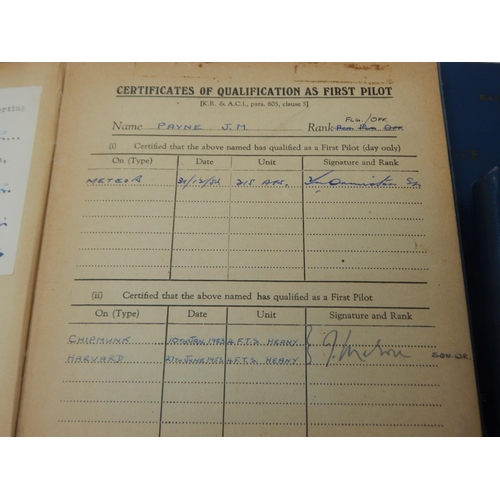 CERTIFICATES OF QUALIFICATION AS FIRST PILOT
[K.R. & A.C.I., para. 805, clause 5]
FLG./OFF.
Name PAYNE J.M. Rank
(i) Certified that the above named has qualified as a First Pilot (day only)
On (Type) Date Unit Signature and Rank
METEOR 30/12/54 215 AFS.
(ii) Certified that the above named has qualified as a First Pilot
On (Type) Date Unit Signature and Rank
CHIPMUNK 1953 4 F.T.S HEANY
HARVARD JUNE 1953 4 F.T.S HEANY SQN.LDR.